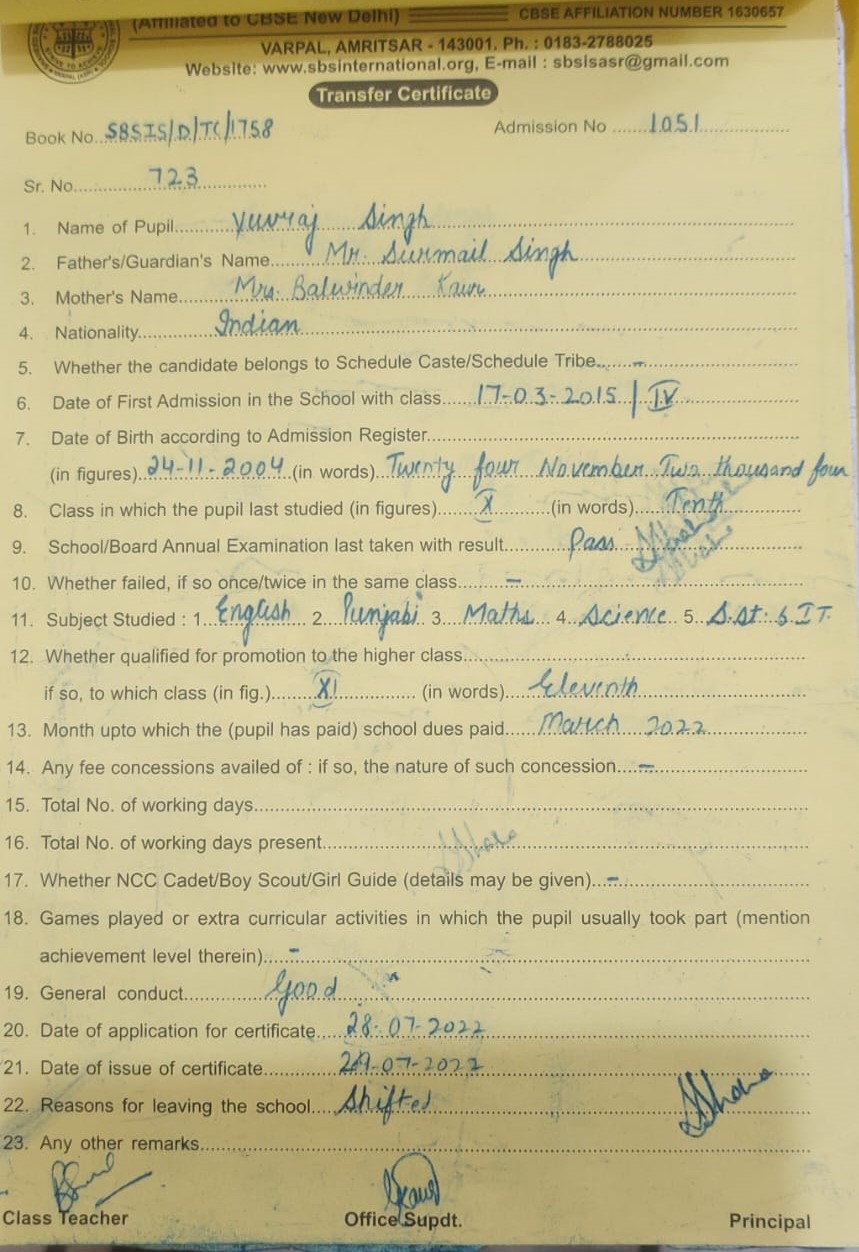 (Affiliated to CBSE New Delhi) CBSE AFFILIATION NUMBER 1630657
VARPAL, AMRITSAR - 143001. Ph. : 0183-2788025
Website: www.sbsinternational.org, E-mail : sbsisasr@gmail.com
Transfer Certificate
Book No. SBSIS/D/TC/1758 Admission No ......1051
Sr. No. 723
1. Name of Pupil Yuvraj Singh
2. Father's/Guardian's Name Mr. Surmail Singh
3. Mother's Name Mrs. Balwinder Kaur
4. Nationality Indian
5. Whether the candidate belongs to Schedule Caste/Schedule Tribe -
6. Date of First Admission in the School with class 17-03-2015 / IV
7. Date of Birth according to Admission Register
(in figures) 24-11-2004 (in words) Twenty four November Two thousand four
8. Class in which the pupil last studied (in figures) X (in words) Tenth
9. School/Board Annual Examination last taken with result Pass
10. Whether failed, if so once/twice in the same class -
11. Subject Studied : 1. English 2. Punjabi 3. Maths 4. Science 5. S.st. 6. IT
12. Whether qualified for promotion to the higher class
if so, to which class (in fig.) XI (in words) Eleventh
13. Month upto which the (pupil has paid) school dues paid March 2022
14. Any fee concessions availed of : if so, the nature of such concession -
15. Total No. of working days
16. Total No. of working days present
17. Whether NCC Cadet/Boy Scout/Girl Guide (details may be given) -
18. Games played or extra curricular activities in which the pupil usually took part (mention
achievement level therein) -
19. General conduct Good
20. Date of application for certificate 28-07-2022
21. Date of issue of certificate 29-07-2022
22. Reasons for leaving the school Shifted
23. Any other remarks
Class Teacher Office Supdt. Principal